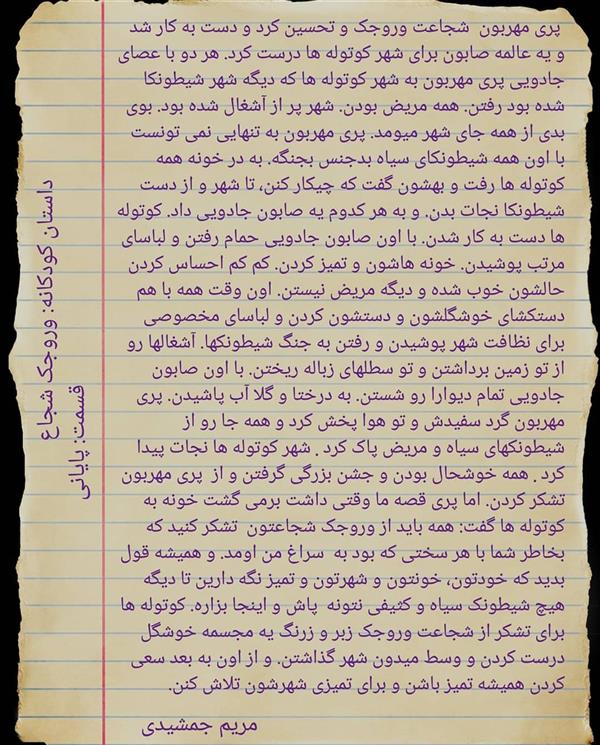 پری مهربون شجاعت وروجک و تحسین کرد و دست به کار شد
و یه عالمه صابون برای شهر کوتوله ها درست کرد. هر دو با عصای
جادویی پری مهربون به شهر کوتوله ها که دیگه شهر شیطونکا
شده بود رفتن. همه مریض بودن. شهر پر از آشغال شده بود. بوی
بدی از همه جای شهر میومد. پری مهربون به تنهایی نمی تونست
با اون همه شیطونکای سیاه بدجنس بجنگه. به در خونه همه
کوتوله ها رفت و بهشون گفت که چیکار کنن، تا شهر و از دست
شیطونکا نجات بدن. و به هر کدوم یه صابون جادویی داد. کوتوله
ها دست به کار شدن. با اون صابون جادویی حمام رفتن و لباسای
مرتب پوشیدن. خونه هاشون و تمیز کردن. کم کم احساس کردن
حالشون خوب شده و دیگه مریض نیستن. اون وقت همه با هم
دستکشای خوشگلشون و دستشون کردن و لباسای مخصوصی
برای نظافت شهر پوشیدن و رفتن به جنگ شیطونکها. آشغالها رو
از تو زمین برداشتن و تو سطلهای زباله ریختن. با اون صابون
جادویی تمام دیوارا رو شستن. به درختا و گلا آب پاشیدن. پری
مهربون گرد سفیدش و تو هوا پخش کرد و همه جا رو از
شیطونکهای سیاه و مریض پاک کرد . شهر کوتوله ها نجات پیدا
کرد . همه خوشحال بودن و جشن بزرگی گرفتن و از پری مهربون
تشکر کردن. اما پری قصه ما وقتی داشت برمی گشت خونه به
کوتوله ها گفت: همه باید از وروجک شجاعتون تشکر کنید که
بخاطر شما با هر سختی که بود به سراغ من اومد. و همیشه قول
بدید که خودتون، خونتون و شهرتون و تمیز نگه دارین تا دیگه
هیچ شیطونک سیاه و کثیفی نتونه پاش و اینجا بزاره. کوتوله ها
برای تشکر از شجاعت وروجک زبر و زرنگ یه مجسمه خوشگل
درست کردن و وسط میدون شهر گذاشتن. و از اون به بعد سعی
کردن همیشه تمیز باشن و برای تمیزی شهرشون تلاش کنن.
مریم جمشیدی
داستان کودکانه: وروجک شجاع
قسمت: پایانی